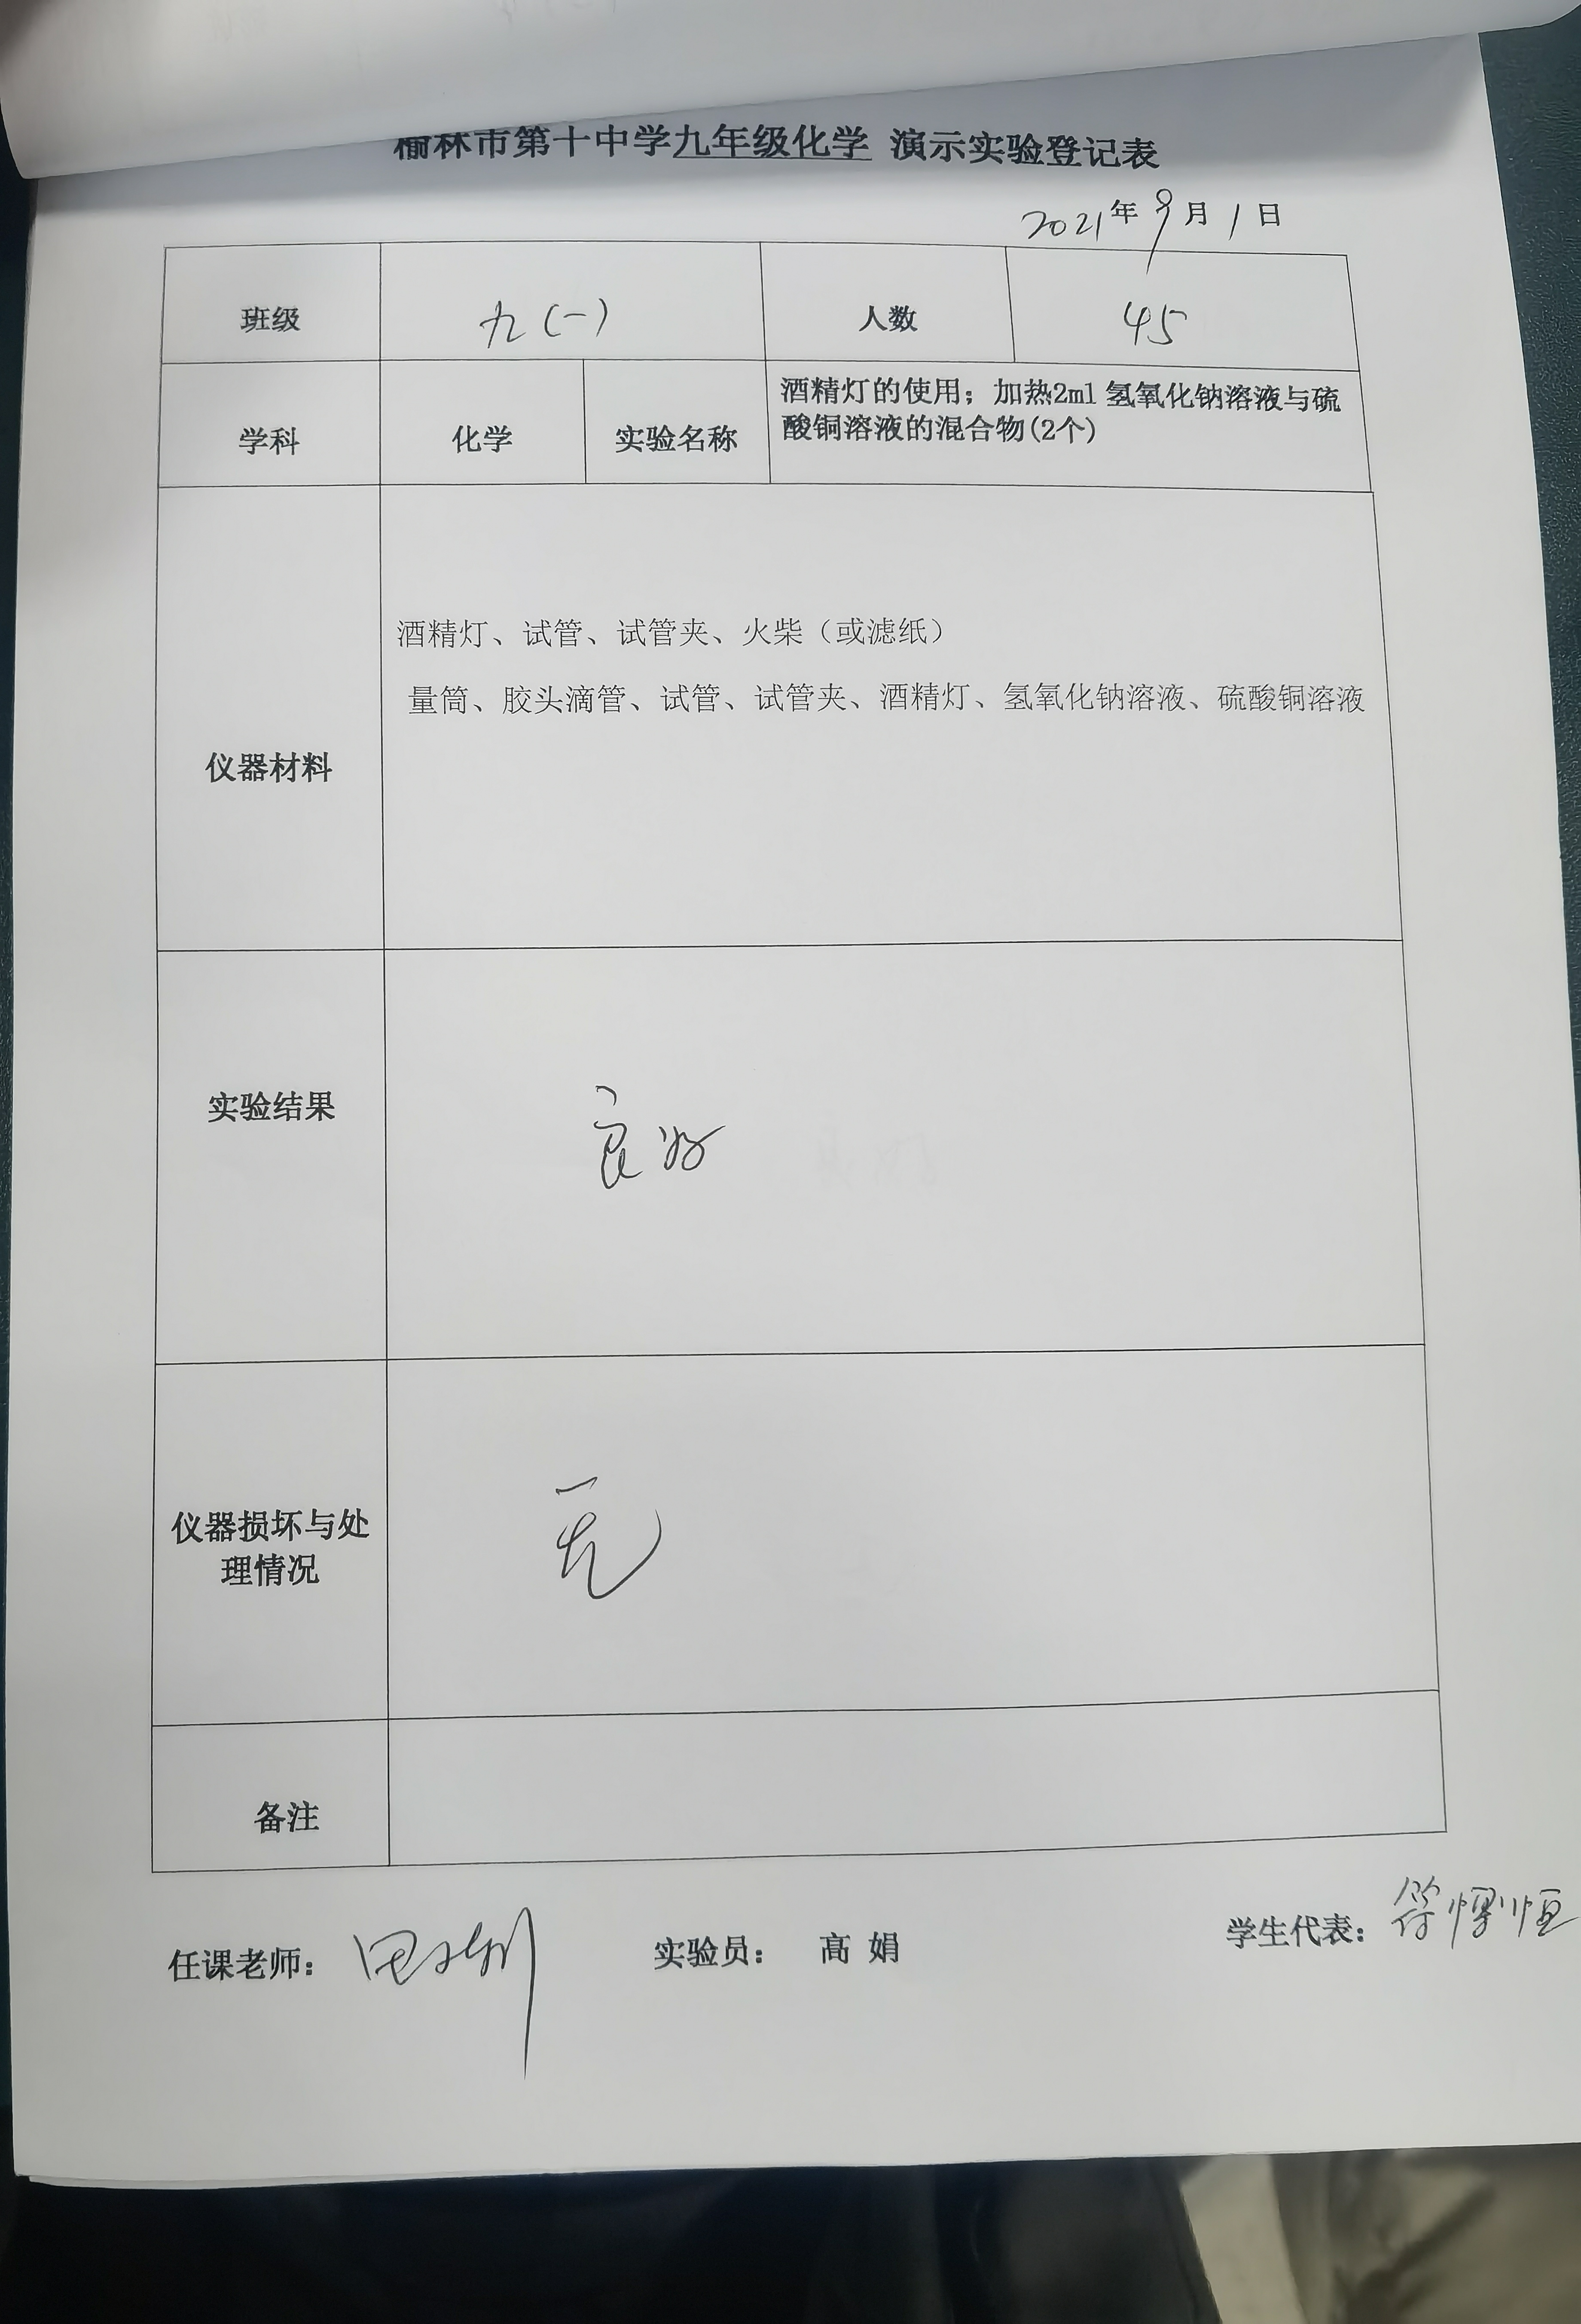 榆林市第十中学九年级化学 演示实验登记表
2021年9月1日
班级 九(一) 人数 45
学科 化学 实验名称 酒精灯的使用；加热2ml 氢氧化钠溶液与硫
酸铜溶液的混合物(2个)
仪器材料
酒精灯、试管、试管夹、火柴（或滤纸）
量筒、胶头滴管、试管、试管夹、酒精灯、氢氧化钠溶液、硫酸铜溶液
实验结果 良好
仪器损坏与处
理情况
无
备注
任课老师： 实验员： 高 娟 学生代表：